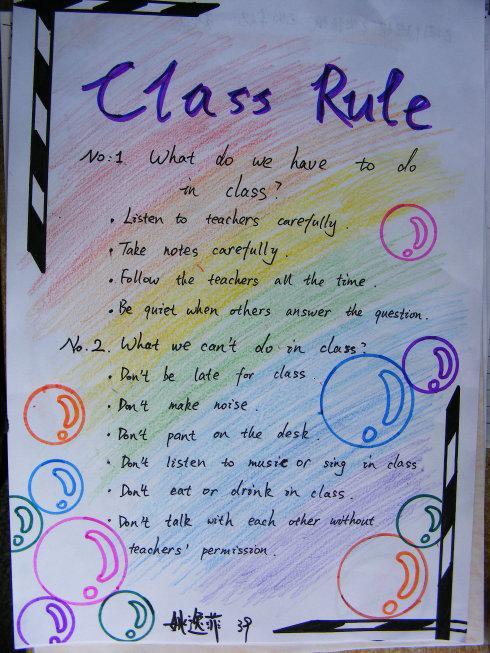 Class Rule
No:1. What do we have to do
in class?
· Listen to teachers carefully.
· Take notes carefully.
· Follow the teachers all the time.
· Be quiet when others answer the question.
No.2. What we can't do in class?
· Don't be late for class.
· Don't make noise.
· Don't pant on the desk.
· Don't listen to music or sing in class
· Don't eat or drink in class.
· Don't talk with each other without
teachers' permission.
姚逸菲 39